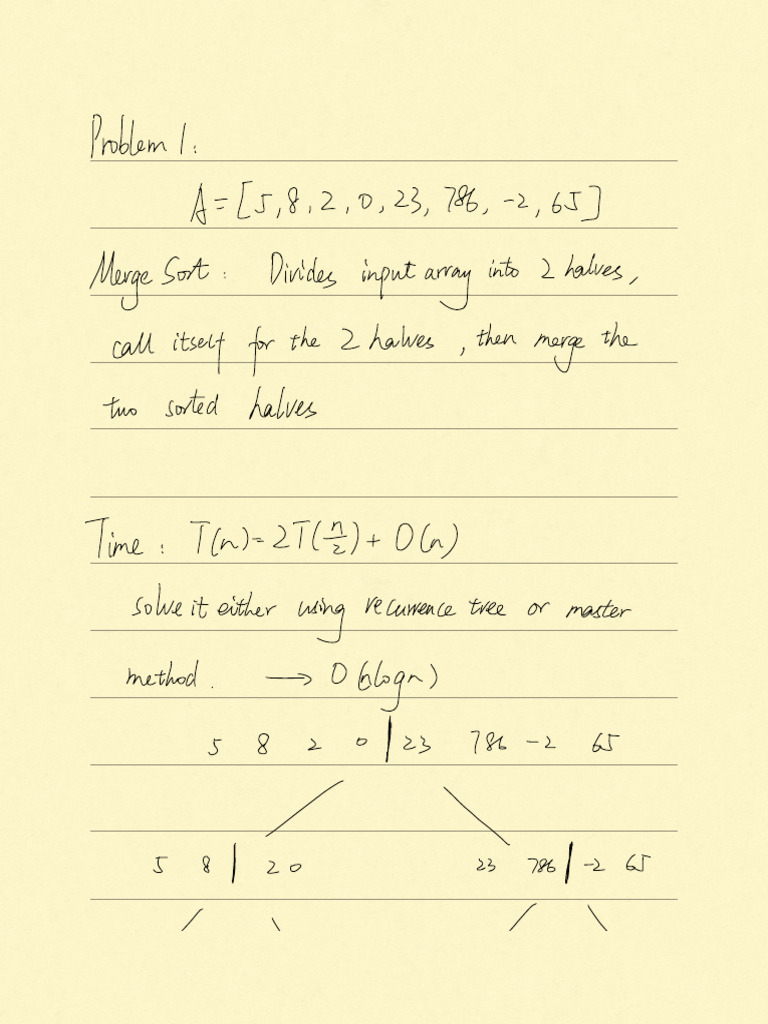 Problem 1:
A = [5, 8, 2, 0, 23, 786, -2, 65]
Merge Sort: Divides input array into 2 halves,
call itself for the 2 halves, then merge the
two sorted halves
Time: T(n) = 2T(n/2) + O(n)
solve it either using recurrence tree or master
method. → O(nlogn)
5 8 2 0 | 23 786 -2 65
5 8 | 2 0 23 786 | -2 65